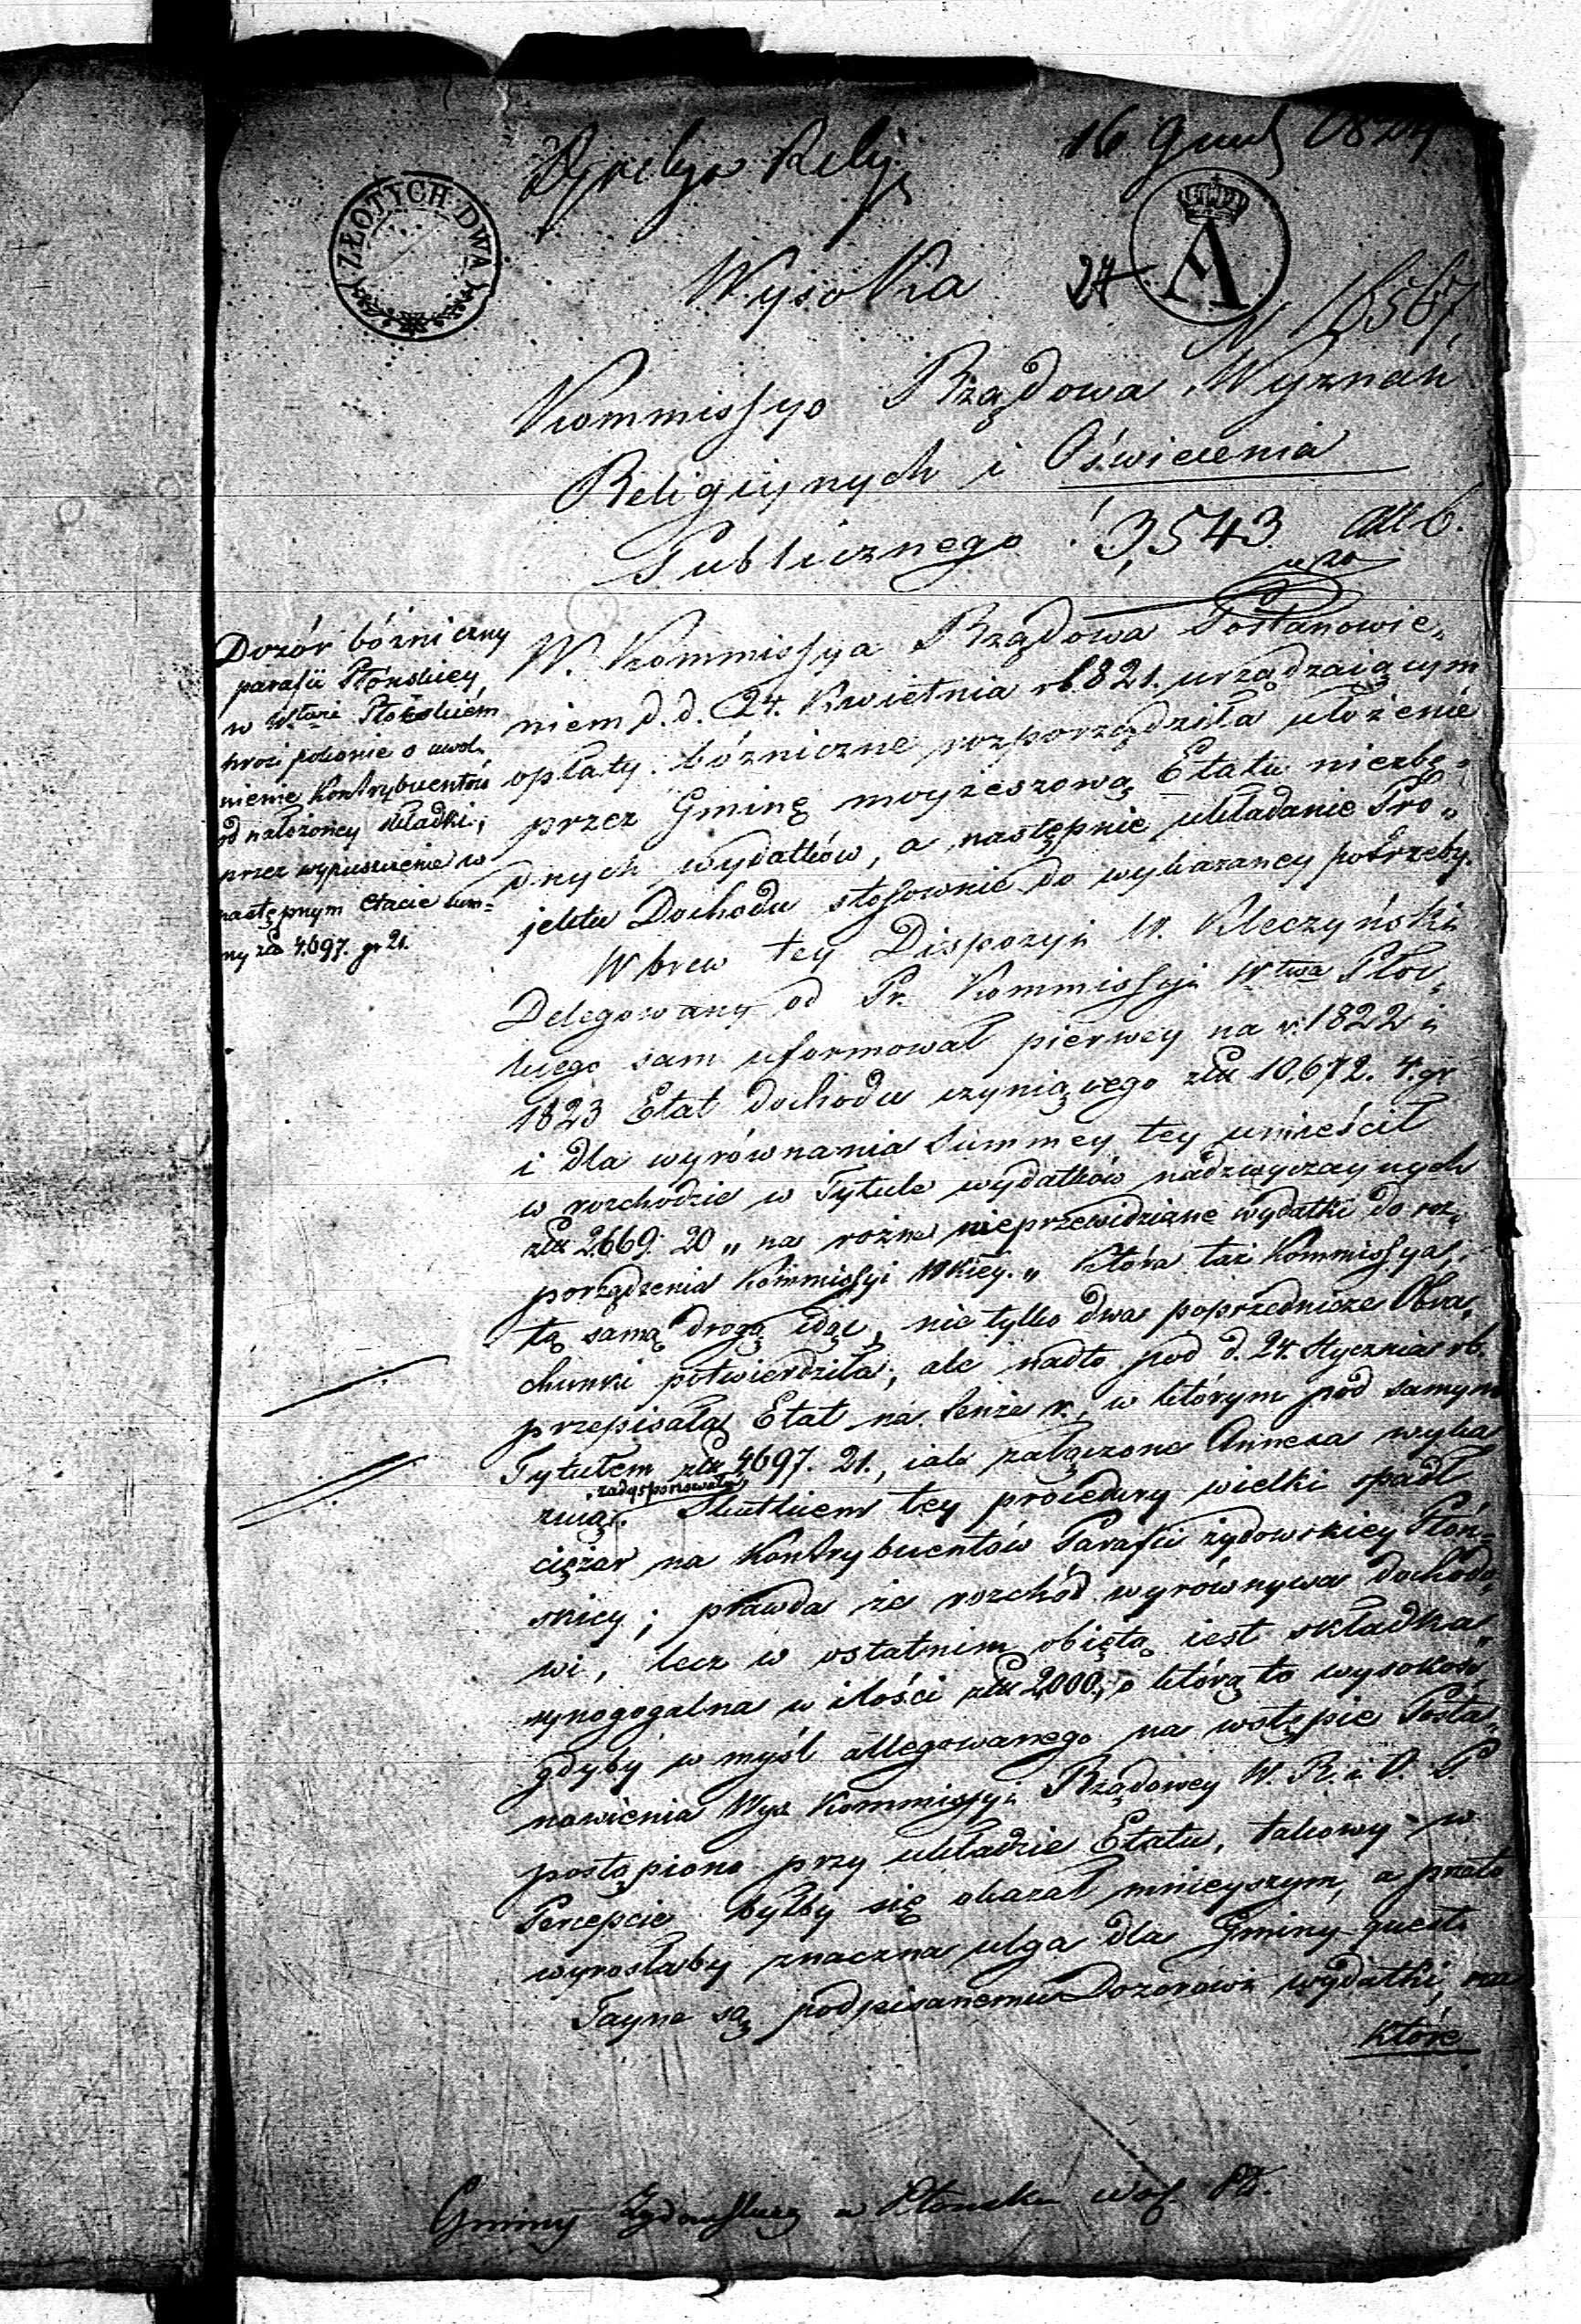 16 Grud 1824
ZŁOTYCH DWA
A
Wysoka
24
N 16567,
Kommissyo Rządowa Wyznań
Religiynych i Oświecenia
Publicznego
3,543.
Dozór bóżniczny
parafii Płońskiey
w Wtwie Płockiem
prosi pokornie o uwol„
nienie Kontrybuentów
od nałożoney składki,
przez wypuszczenie w
następnym Etacie sum„
ny złt 4.697. gr 21.
W. Kommissya Rządowa Postanowie„
niem d. d. 24. Kwietnia r. 1821. urządzaiącym
opłaty bóżniczne rozporządziła ułożenie
przez Gminę moyżeszową Etatu niezbę„
dnych wydatków, a następnie układanie Pro„
jektu Dochodu stosownie do wykazaney potrzeby.
Wbrew tey Dispozycyi W. Kleczyński
Delegowany od Pr. Kommissyi Wtwa Płoc„
kiego sam uformował pierwey na r. 1822 i
1823 Etat dochodu czyniącego złt 10,672. 4. gr
i dla wyrównania Summey tey umieścił
w rozchodzie w Tytule wydatków nadzwyczaynych
złt 2669. 20 „ na rożne nieprzewidziane wydatki do roz„
porządzenia Kommissyi Wkiey. „ Która taż Kommissya,
tą samą drogą idąc, nie tylko dwa poprzednicze Obra„
chunki potwierdziła, ale nadto pod d. 24. Stycznia rb.
przepisała Etat na tenże r., w którym pod samym
Tytułem złt 4697. 21., iak załączone Annexa wyka
zuią. zadysponowała Skutkiem tey procedury wielki spadł
ciężar na Kontrybuentów Parafii żydowskiey Płoń„
skiey; prawda że rozchód wyrównywa dochodo„
wi, lecz w ostatnim obiętą iest składka
synogogalna w ilości złt 2,000, o którą to wysokość
gdyby w myśl allegowanego na wstępie Posta„
nowienia Wys Kommissyi Rządowey W. R. i O. P.
postąpiono przy układzie Etatu, takowy w
Percepcie byłby się okazał mnieyszym, a przeto
wyrosłaby znaczna ulga dla Gminy quest.
Tayne są podpisanemu Dozorowi wydatki, na
które
Gminy Żydowskiey w Płońsku